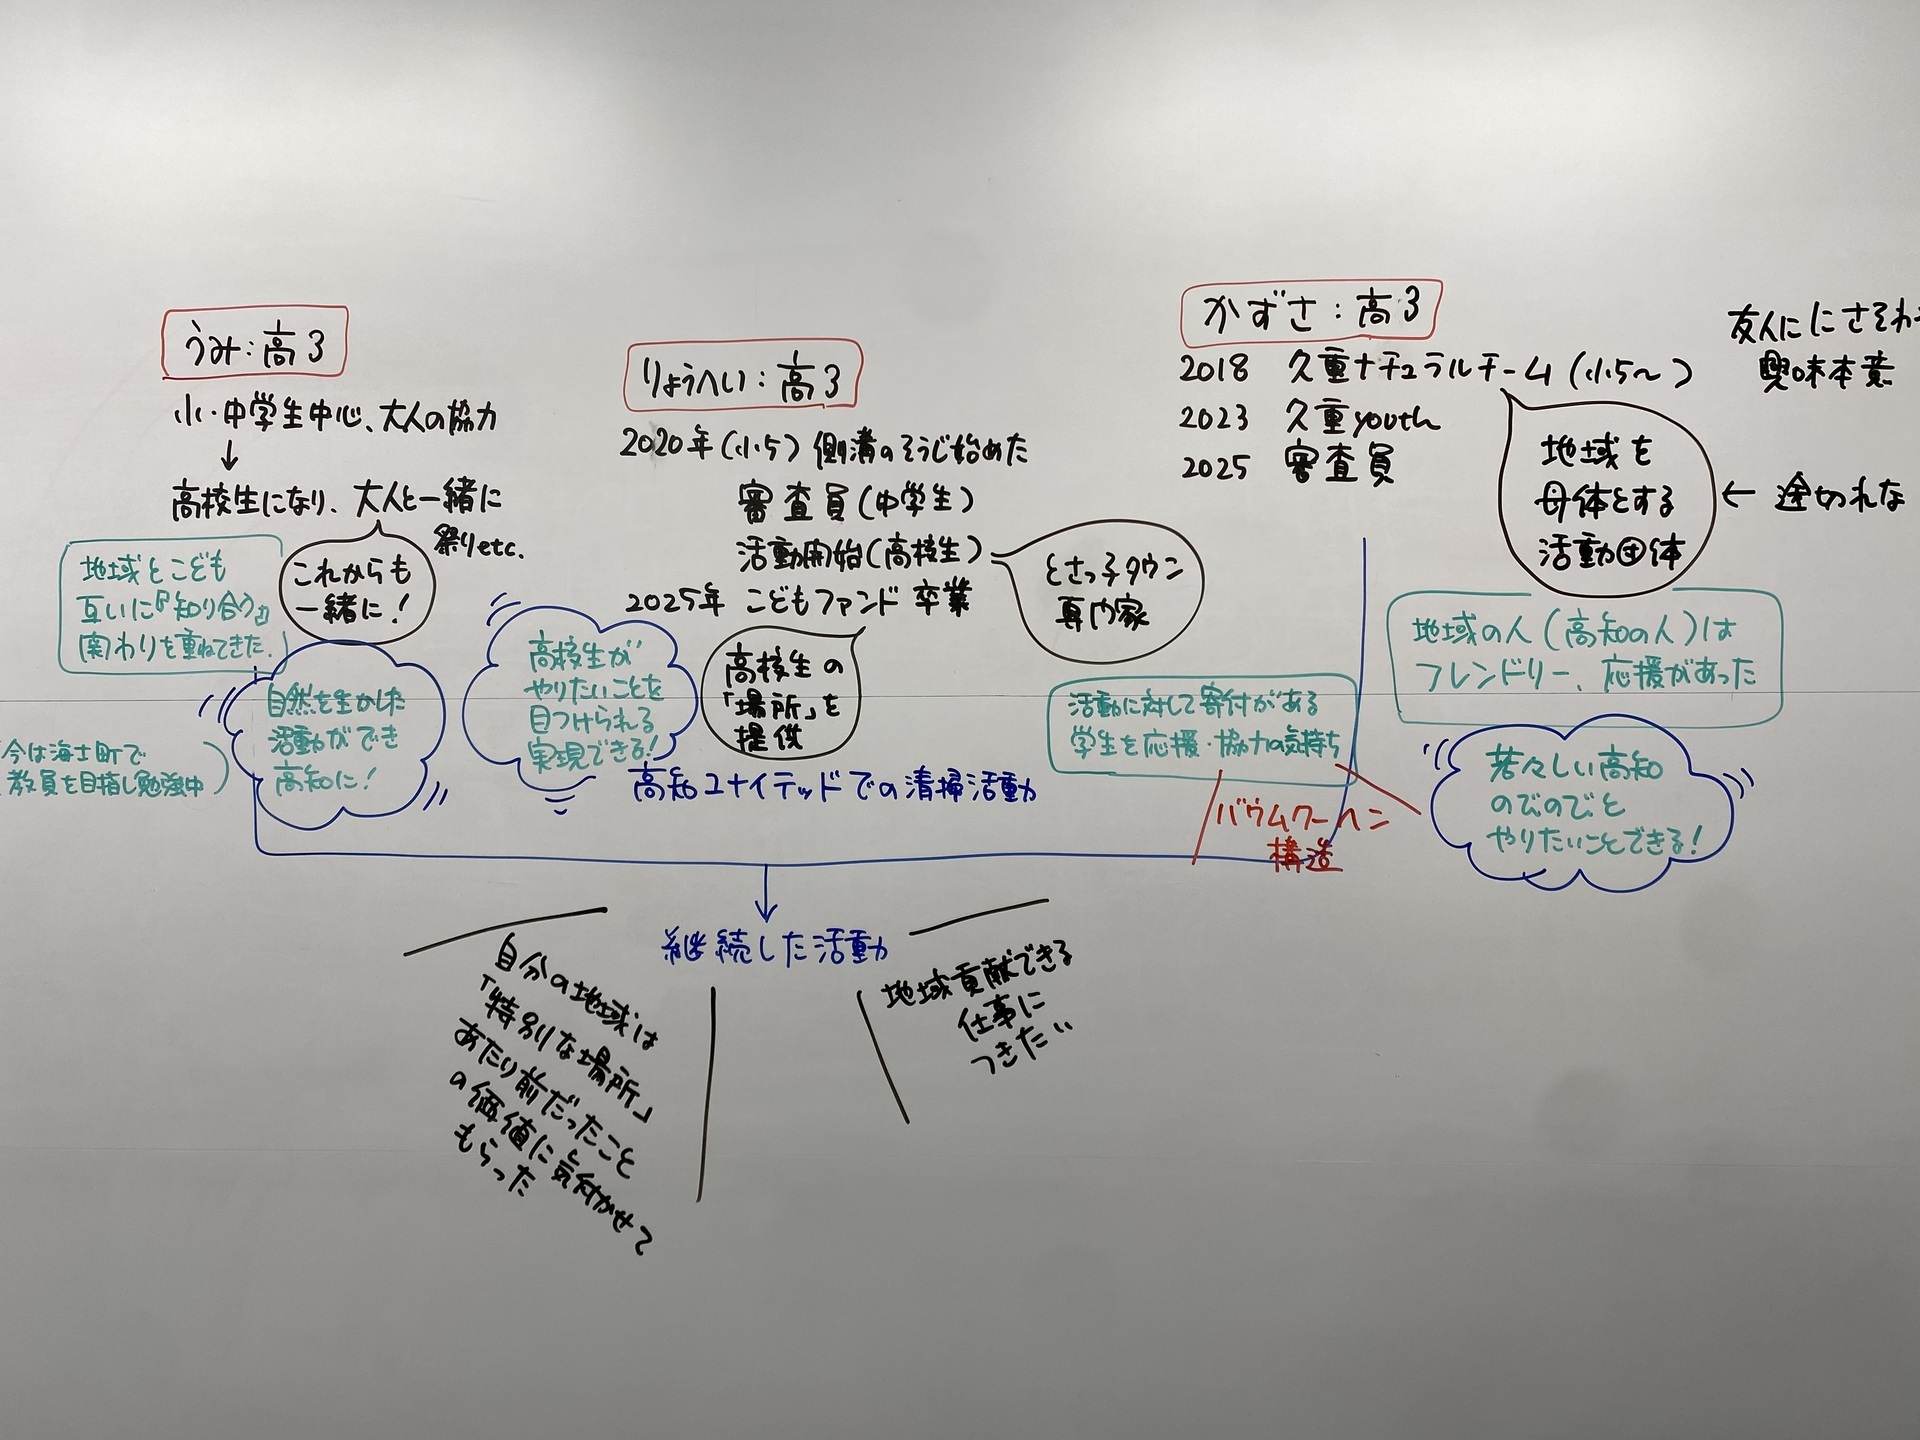 うみ:高3
小・中学生中心、大人の協力
↓
高校生になり、大人と一緒に
祭りetc.
これからも
一緒に!
地域とこども
互いに『知り合う』
関わりを重ねてきた.
自然を生かした
活動ができ
高知に!
今は海士町で
教員を目指し勉強中
りょうへい:高3
2020年(小5) 側溝のそうじ始めた
審査員(中学生)
活動開始(高校生)
2025年 こどもファンド 卒業
とさっ子タウン
専門家
高校生の
「場所」を
提供
高校生が
やりたいことを
見つけられる
実現できる!
高知ユナイテッドでの清掃活動
かずさ:高3
2018 久重ナチュラルチーム(小5~)
2023 久重youth
2025 審査員
友人ににさそわ
興味本意
地域を
母体とする
活動団体
← 途切れな
地域の人(高知の人)は
フレンドリー、応援があった
活動に対して寄付がある
学生を応援・協力の気持ち
バウムクーヘン
構造
若々しい高知
のびのびと
やりたいことできる!
継続した活動
自分の地域は
「特別な場所」
あたり前だったこと
の価値に気付かせて
もらった
地域貢献できる
仕事に
つきたい